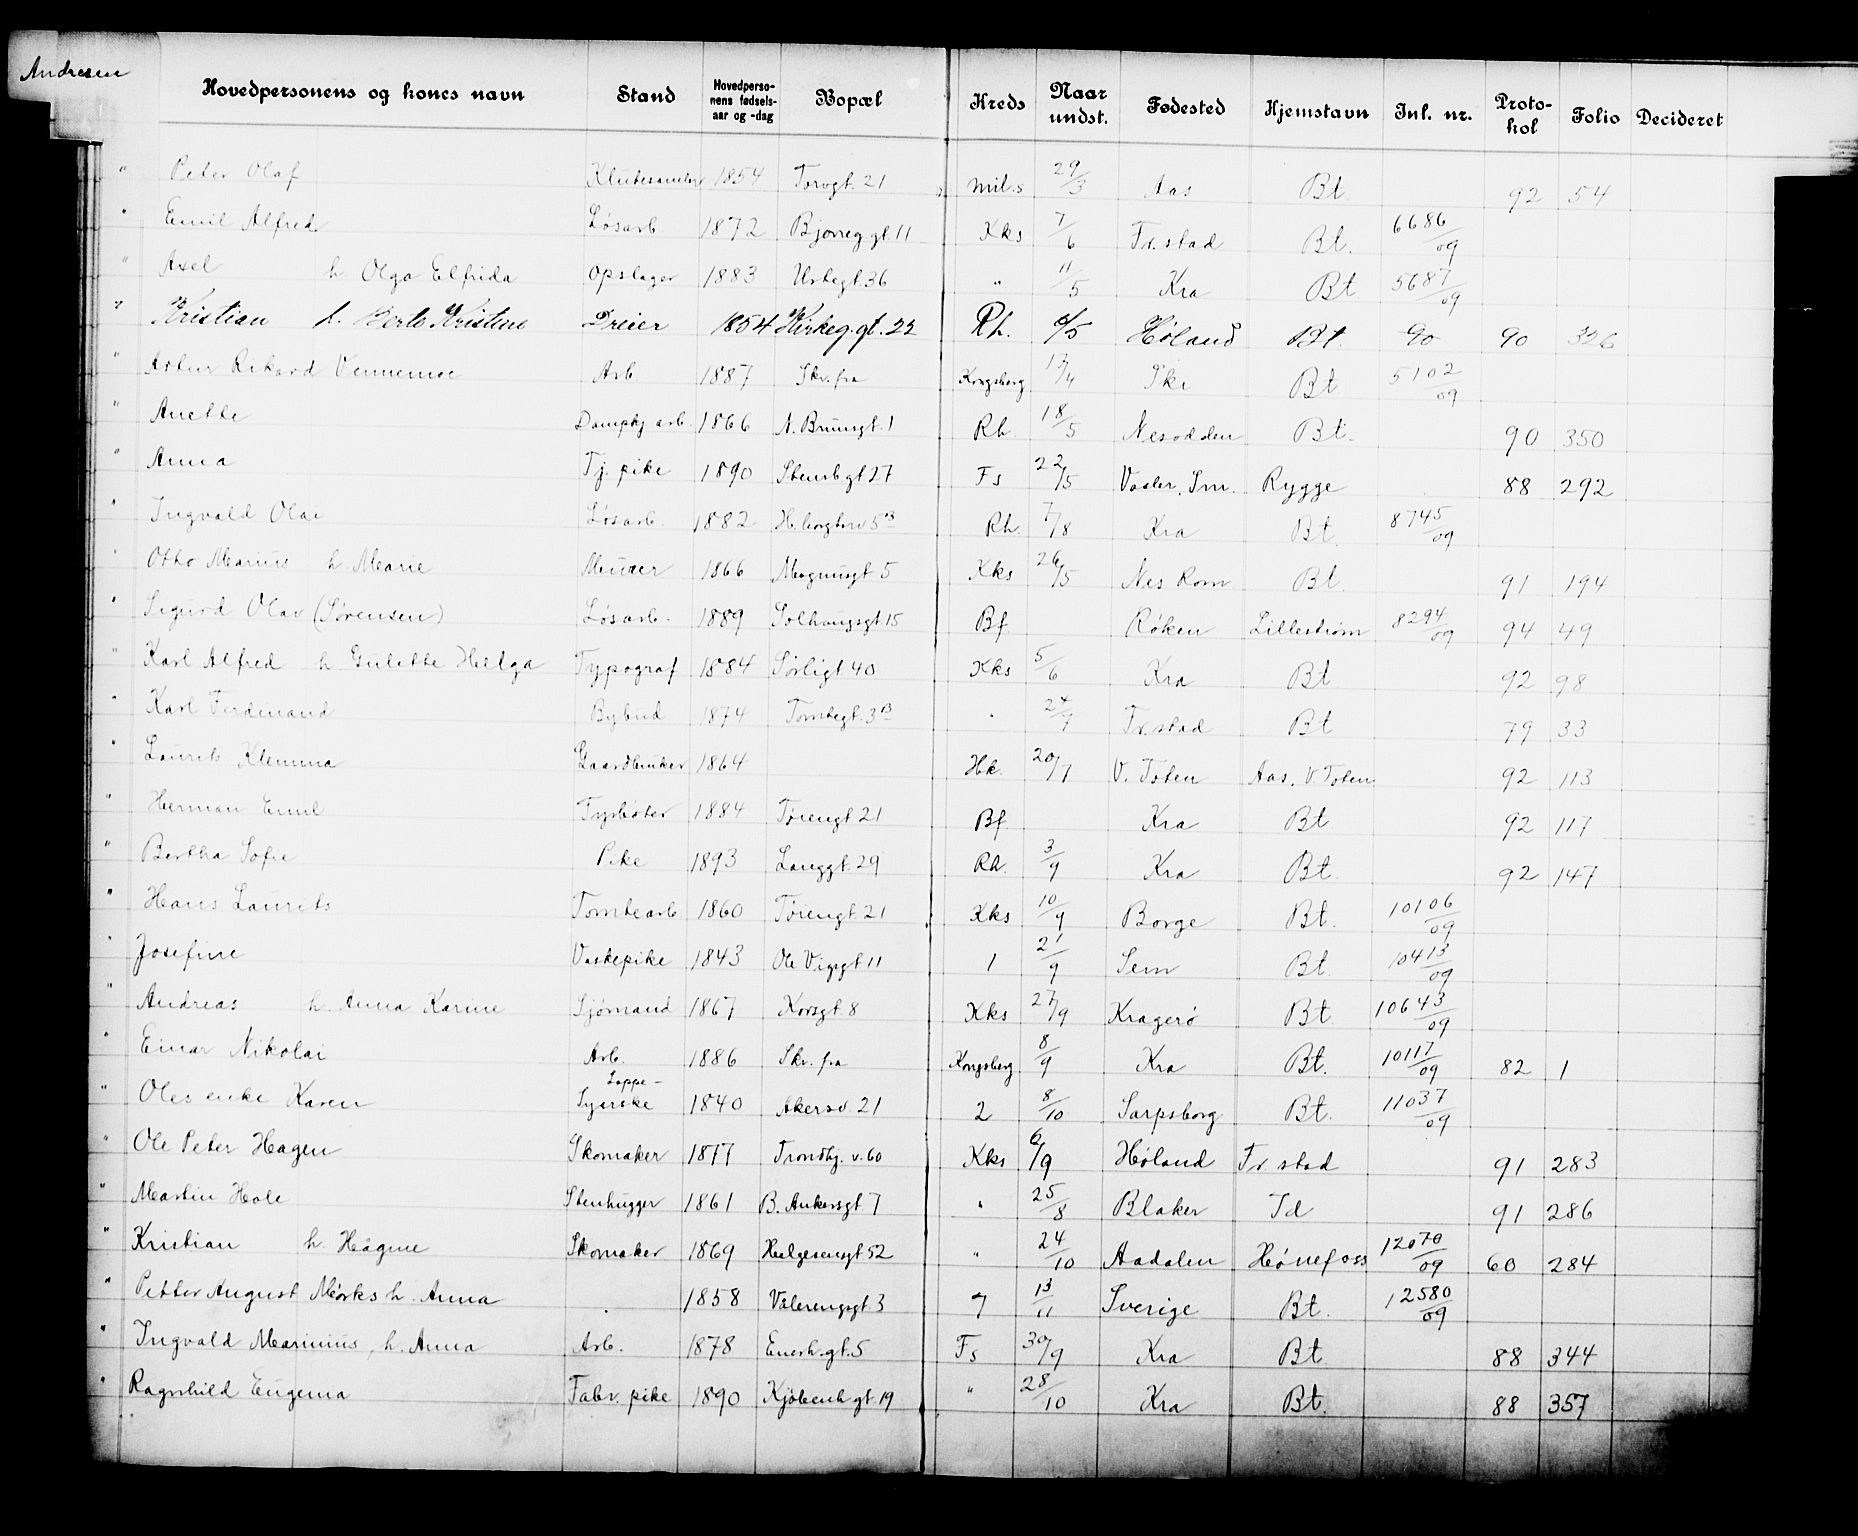 Andresen
Hovedpersonens og kones navn Stand Hovedperso-nens fødsels-aar og -dag Bopæl Kreds Naar undst. Fødested Hjemstavn Inl. nr. Proto-kol Folio Decideret
" Peter Olaf Klutesamler 1854 Torvgt. 21 mil.s 29/3 Aas Bt. 92 54
" Emil Alfred Løsarb 1872 Bjerreg.gt. 11 Kks 7/6 Fr.stad Bt. 6686/09
" Axel h Olga Elfrida Opslager 1883 Urtegt. 36 " 11/5 Kra Bt 5687/09
" Kristian h. Berte Kristine Dreier 1854 Kirkeg.gt. 22 Rh. 6/5 Høland Bt. 90 90 326
" Artur Rikard Vennemoe Arb 1887 Skr. fra Kongsberg 13/4 Ski Bt. 5102/09
" Anette Dampkj arb. 1866 N. Brunsgt. 1 Rh. 18/5 Nesodden Bt. 90 350
" Anna Tj. pike 1890 Stensbgt 27 Fs 22/5 Vaaler, Sm. Rygge 88 292
" Ingvald Olai Løsarb. 1882 H.borgtorv 5 B Rh. 7/8 Kra Bt. 8745/09
" Otto Marius h. Marie Murer 1866 Magnusgt 5 Kks 26/5 Nes Rom Bt. 91 194
" Sigurd Olav (Sørensen) Løsarb. 1889 Solhaugsgt 15 Bf. Røken Lillestrøm 8294/09 94 49
" Karl Alfred h. Gulette Helga Typograf 1884 Sørligt 40 Kks 5/6 Kra Bt 92 98
" Karl Ferdinand Bybud 1874 Tomtegt. 3 B " 24/7 Fr.stad Bt 79 33
" Laurits Klemma Gaardbruker 1864 Hk. 20/7 V. Toten Aas, V Toten 92 113
" Herman Emil Fyrbøter 1884 Tøiengt 21 Bf Kra Bt. 92 117
" Bertha Sofie Pike 1893 Langgt. 29 Rh. 3/9 Kra Bt. 92 147
" Hans Laurits Tomtearb 1860 Tøiengt. 21 Kks 10/9 Borge Bt. 10106/09
" Josefine Vaskepike 1843 Ole Vigsgt 11 1 21/9 Sem Bt. 10413/09
" Andreas h. Anna Karine Sjømand 1867 Korsgt 8 Kks 27/9 Kragerø Bt. 10643/09
" Einar Nikolai Arb. 1886 Skr. fra Kongsberg 8/9 Kra Bt. 10117/09 82 1
" Oles enke Karen Lappe-Syerske 1840 Akersv. 21 2 8/10 Sarpsborg Bt. 11037/09
" Ole Peter Hagen Skomaker 1877 Trondhj. v. 60 Kks 6/9 Høland Fr.stad 91 283
" Martin Hole Stenhugger 1861 B. Ankersgt 7 " 25/8 Blaker Id 91 286
" Kristian h. Hagine Skomaker 1869 Helgesensgt 52 " 24/10 Aadalen Hønefoss 12070/09 60 284
" Petter August Mørks h. Anna " 1858 Vålerengsgt. 3 7 13/11 Sverige Bt. 12580/09
" Ingvald Marinius, h. Anna Arb. 1878 Enerh.gt. 5 Fs 30/9 Kra Bt 88 344
" Ragnhild Eugenia Fabr. pike 1890 Kjøbenh gt 19 " 28/10 Kra Bt. 88 357